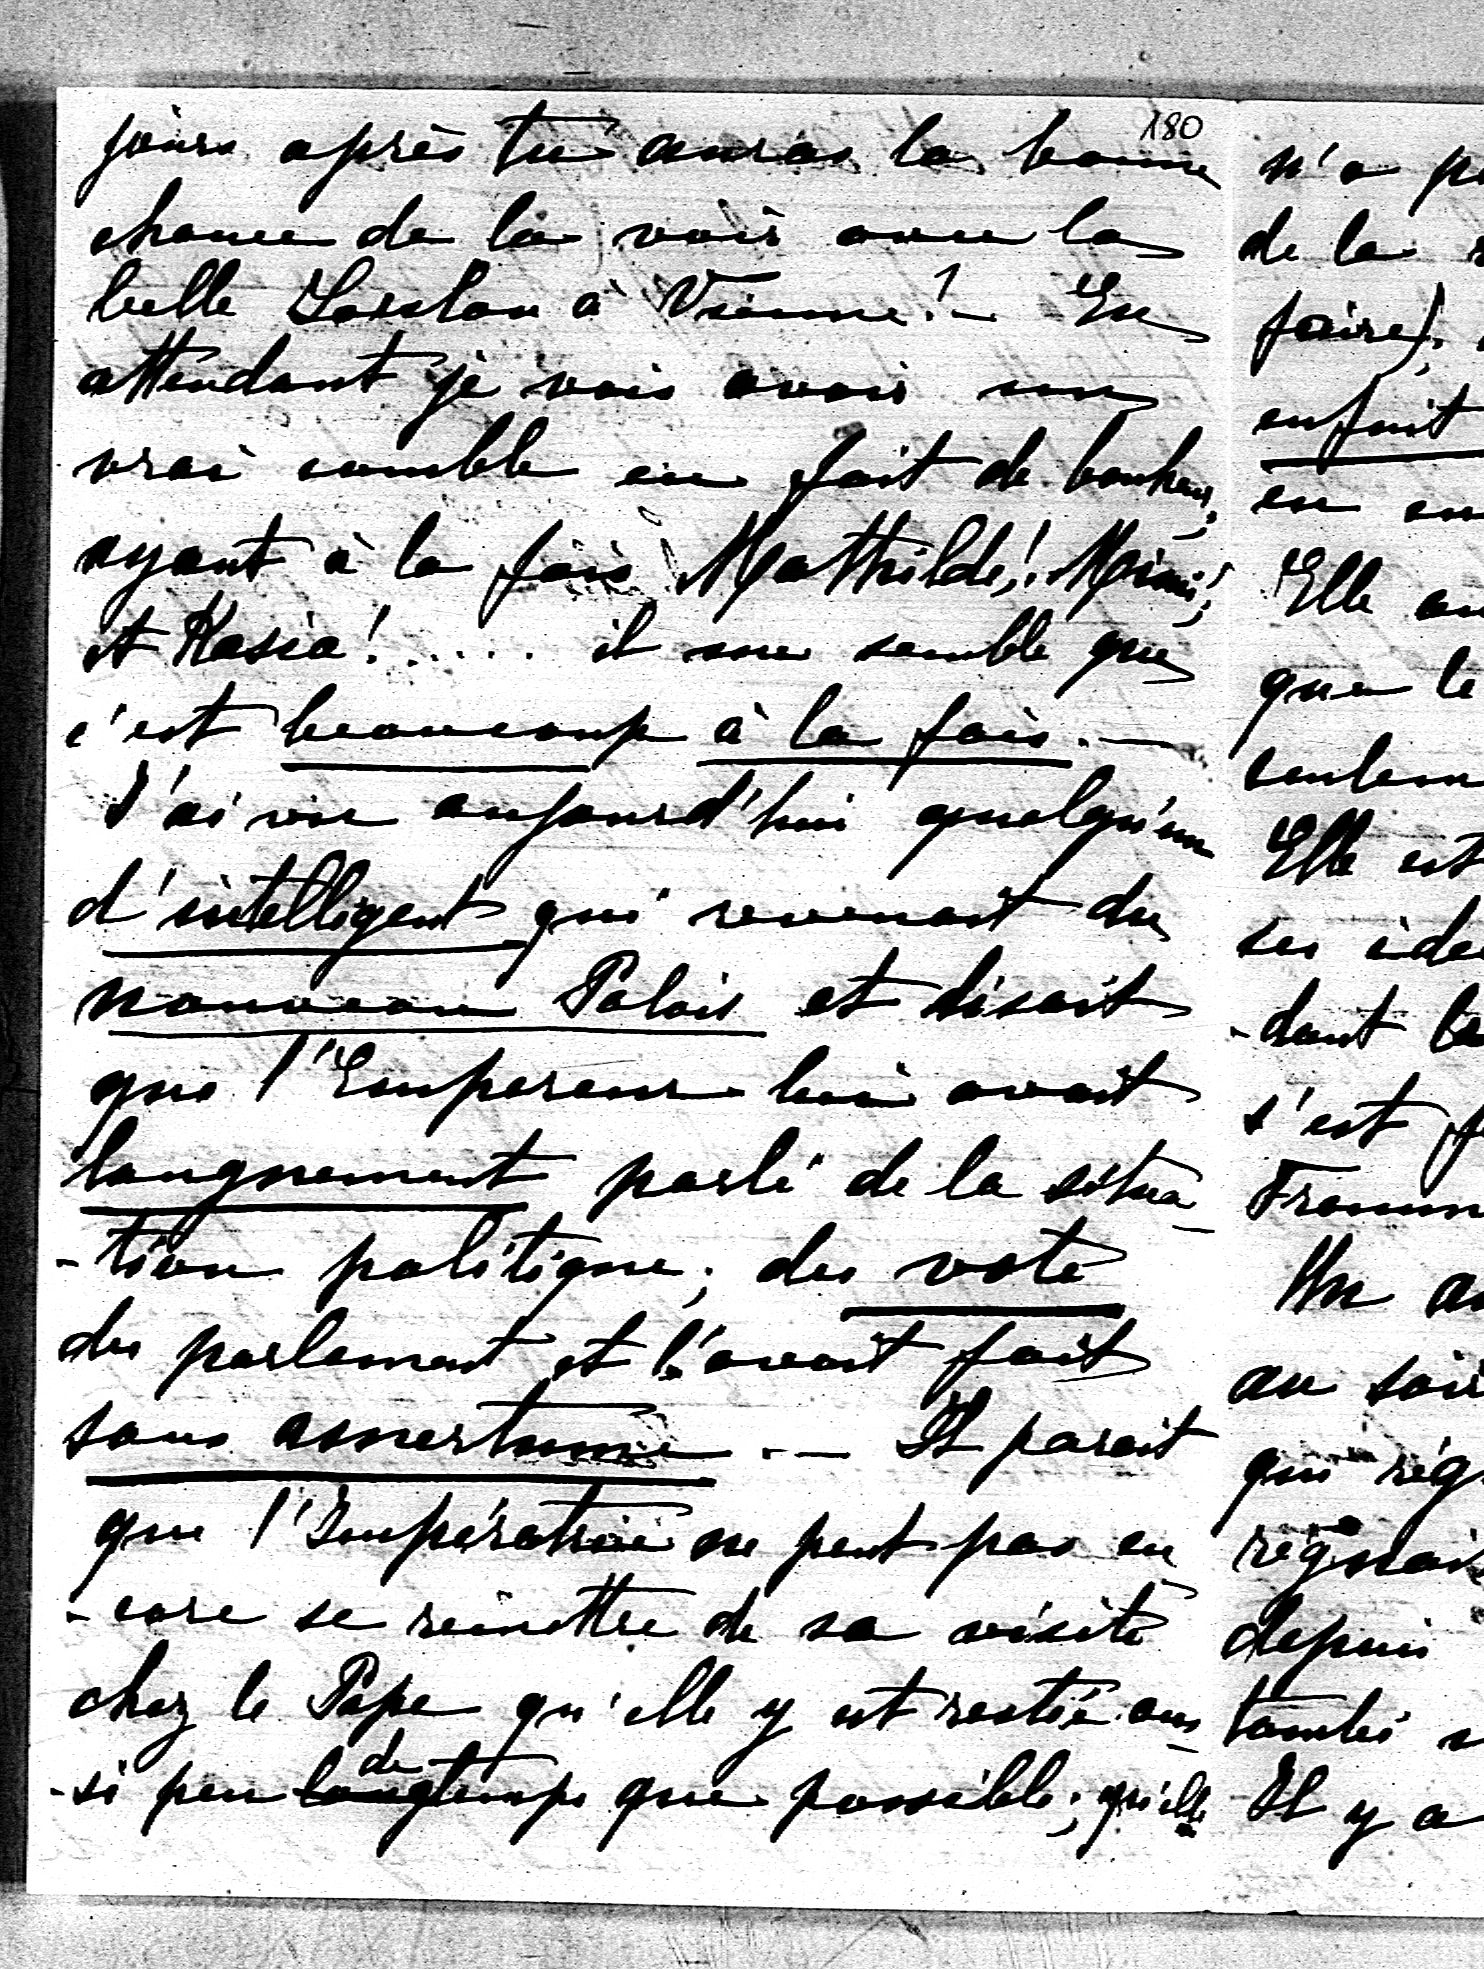 180
jours après tu auras la bonne
chance de la voir avec la
belle à Vienne! — En
attendant je vais avoir un
vrai comble en fait de bonheur,
ayant à la fois Mathilde! Mimi!
et Kasia! ..... il me semble que
c'est beaucoup à la fois. —
J'ai vu aujourd'hui quelqu'un
d'intelligent qui revenait du
nouveau Palais et disait
que l'Empereur lui avait
longuement parlé de la situa-
-tion politique; du vote
du parlement et l'avait fait
sans amertume. — Il parait
que l'Impératrice ne peut pas en
-core se remettre de sa visite
chez le Pape qu'elle y est restée aus-
-si peu de temps que possible; qu'elle
n'a
de la
faire).
enfuit
en
Elle
que le
seulem
Elle est
ses idé
-dant
s'est f
Un
au soir
qui rég
régnait
depuis
tombé
Il y a